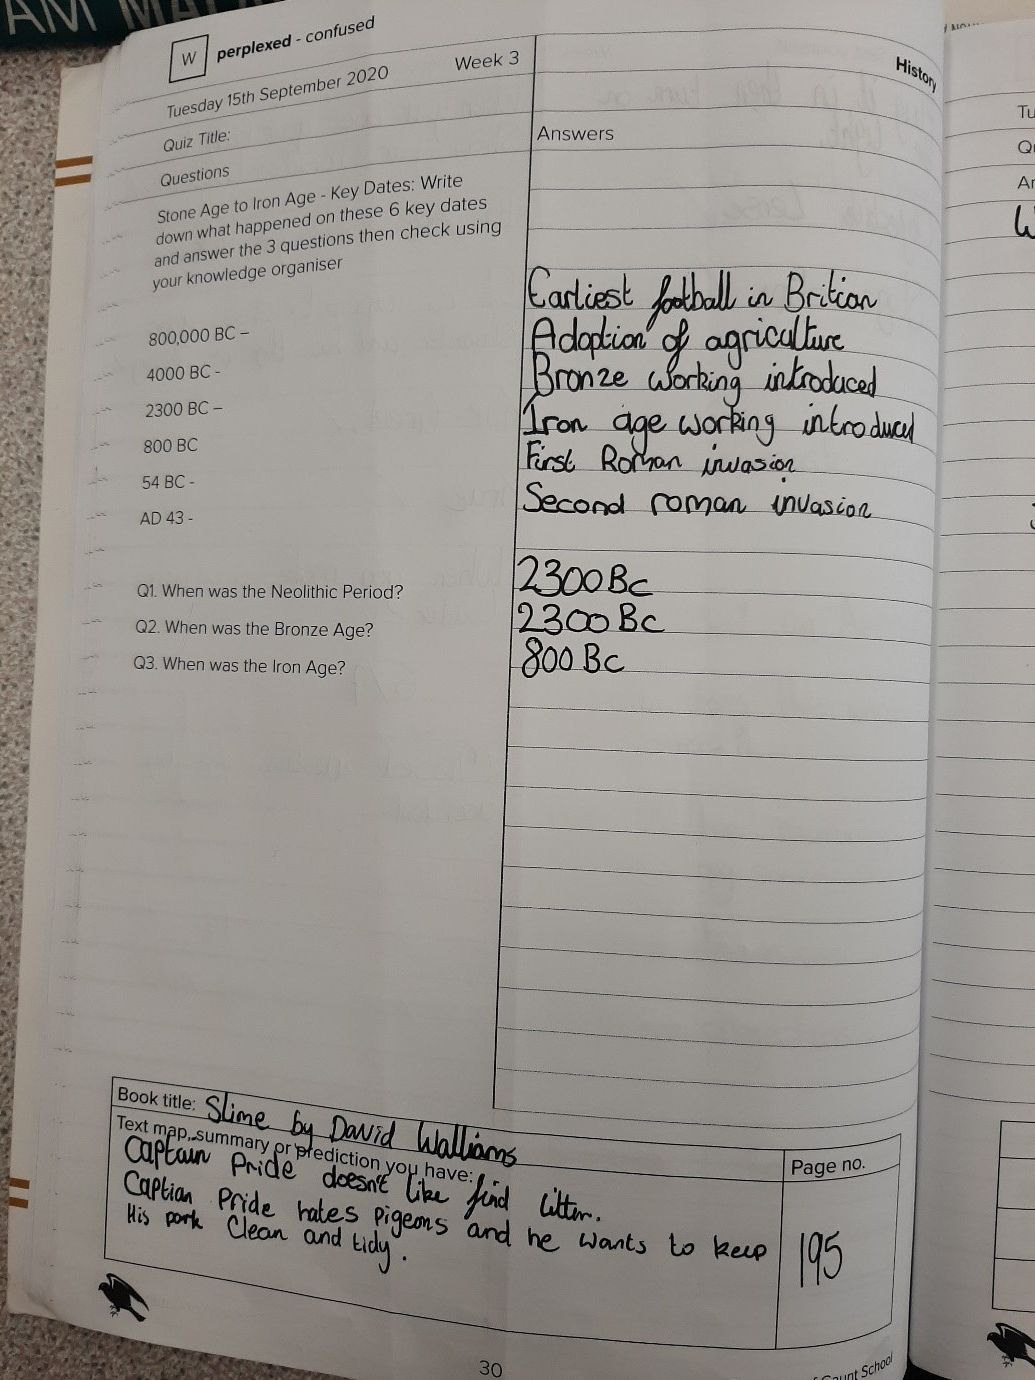 W perplexed - confused
Tuesday 15th September 2020 Week 3
History
Quiz Title:
Questions
Answers
Stone Age to Iron Age - Key Dates: Write
down what happened on these 6 key dates
and answer the 3 questions then check using
your knowledge organiser
800,000 BC – Earliest football in Britian
4000 BC - Adoption of agriculture
2300 BC – Bronze working introduced
800 BC Iron age working introduced
54 BC - First Roman invasion
AD 43 - Second roman invasion
Q1. When was the Neolithic Period? 2300 BC
Q2. When was the Bronze Age? 2300 BC
Q3. When was the Iron Age? 800 BC
Book title: Slime by David Walliams
Text map, summary or prediction you have:
Page no.
Captain Pride doesn't like find litter.
Captian Pride hates pigeons and he wants to keep
His park Clean and tidy.
195
30
Count School
Tu